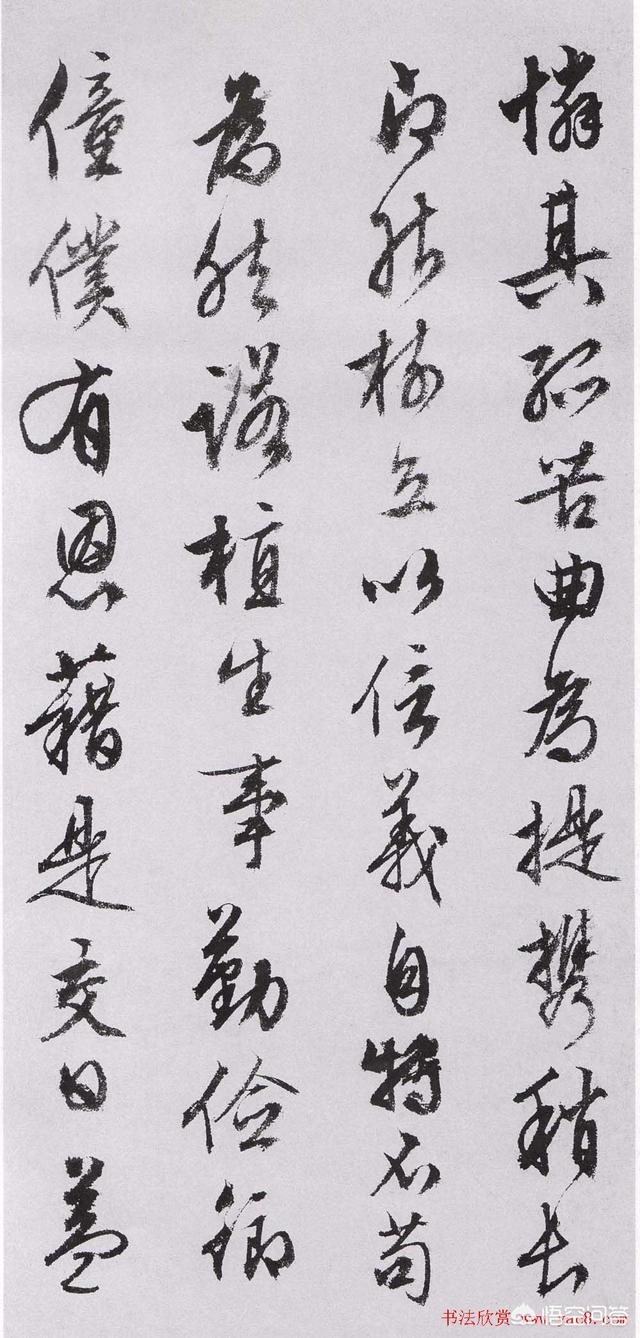 憐其孤苦曲為提攜稍長
即能樹立以信義自持不苟
為然諾植生事勤儉御
僮僕有恩藉是交日益
书法欣赏
悟空问答